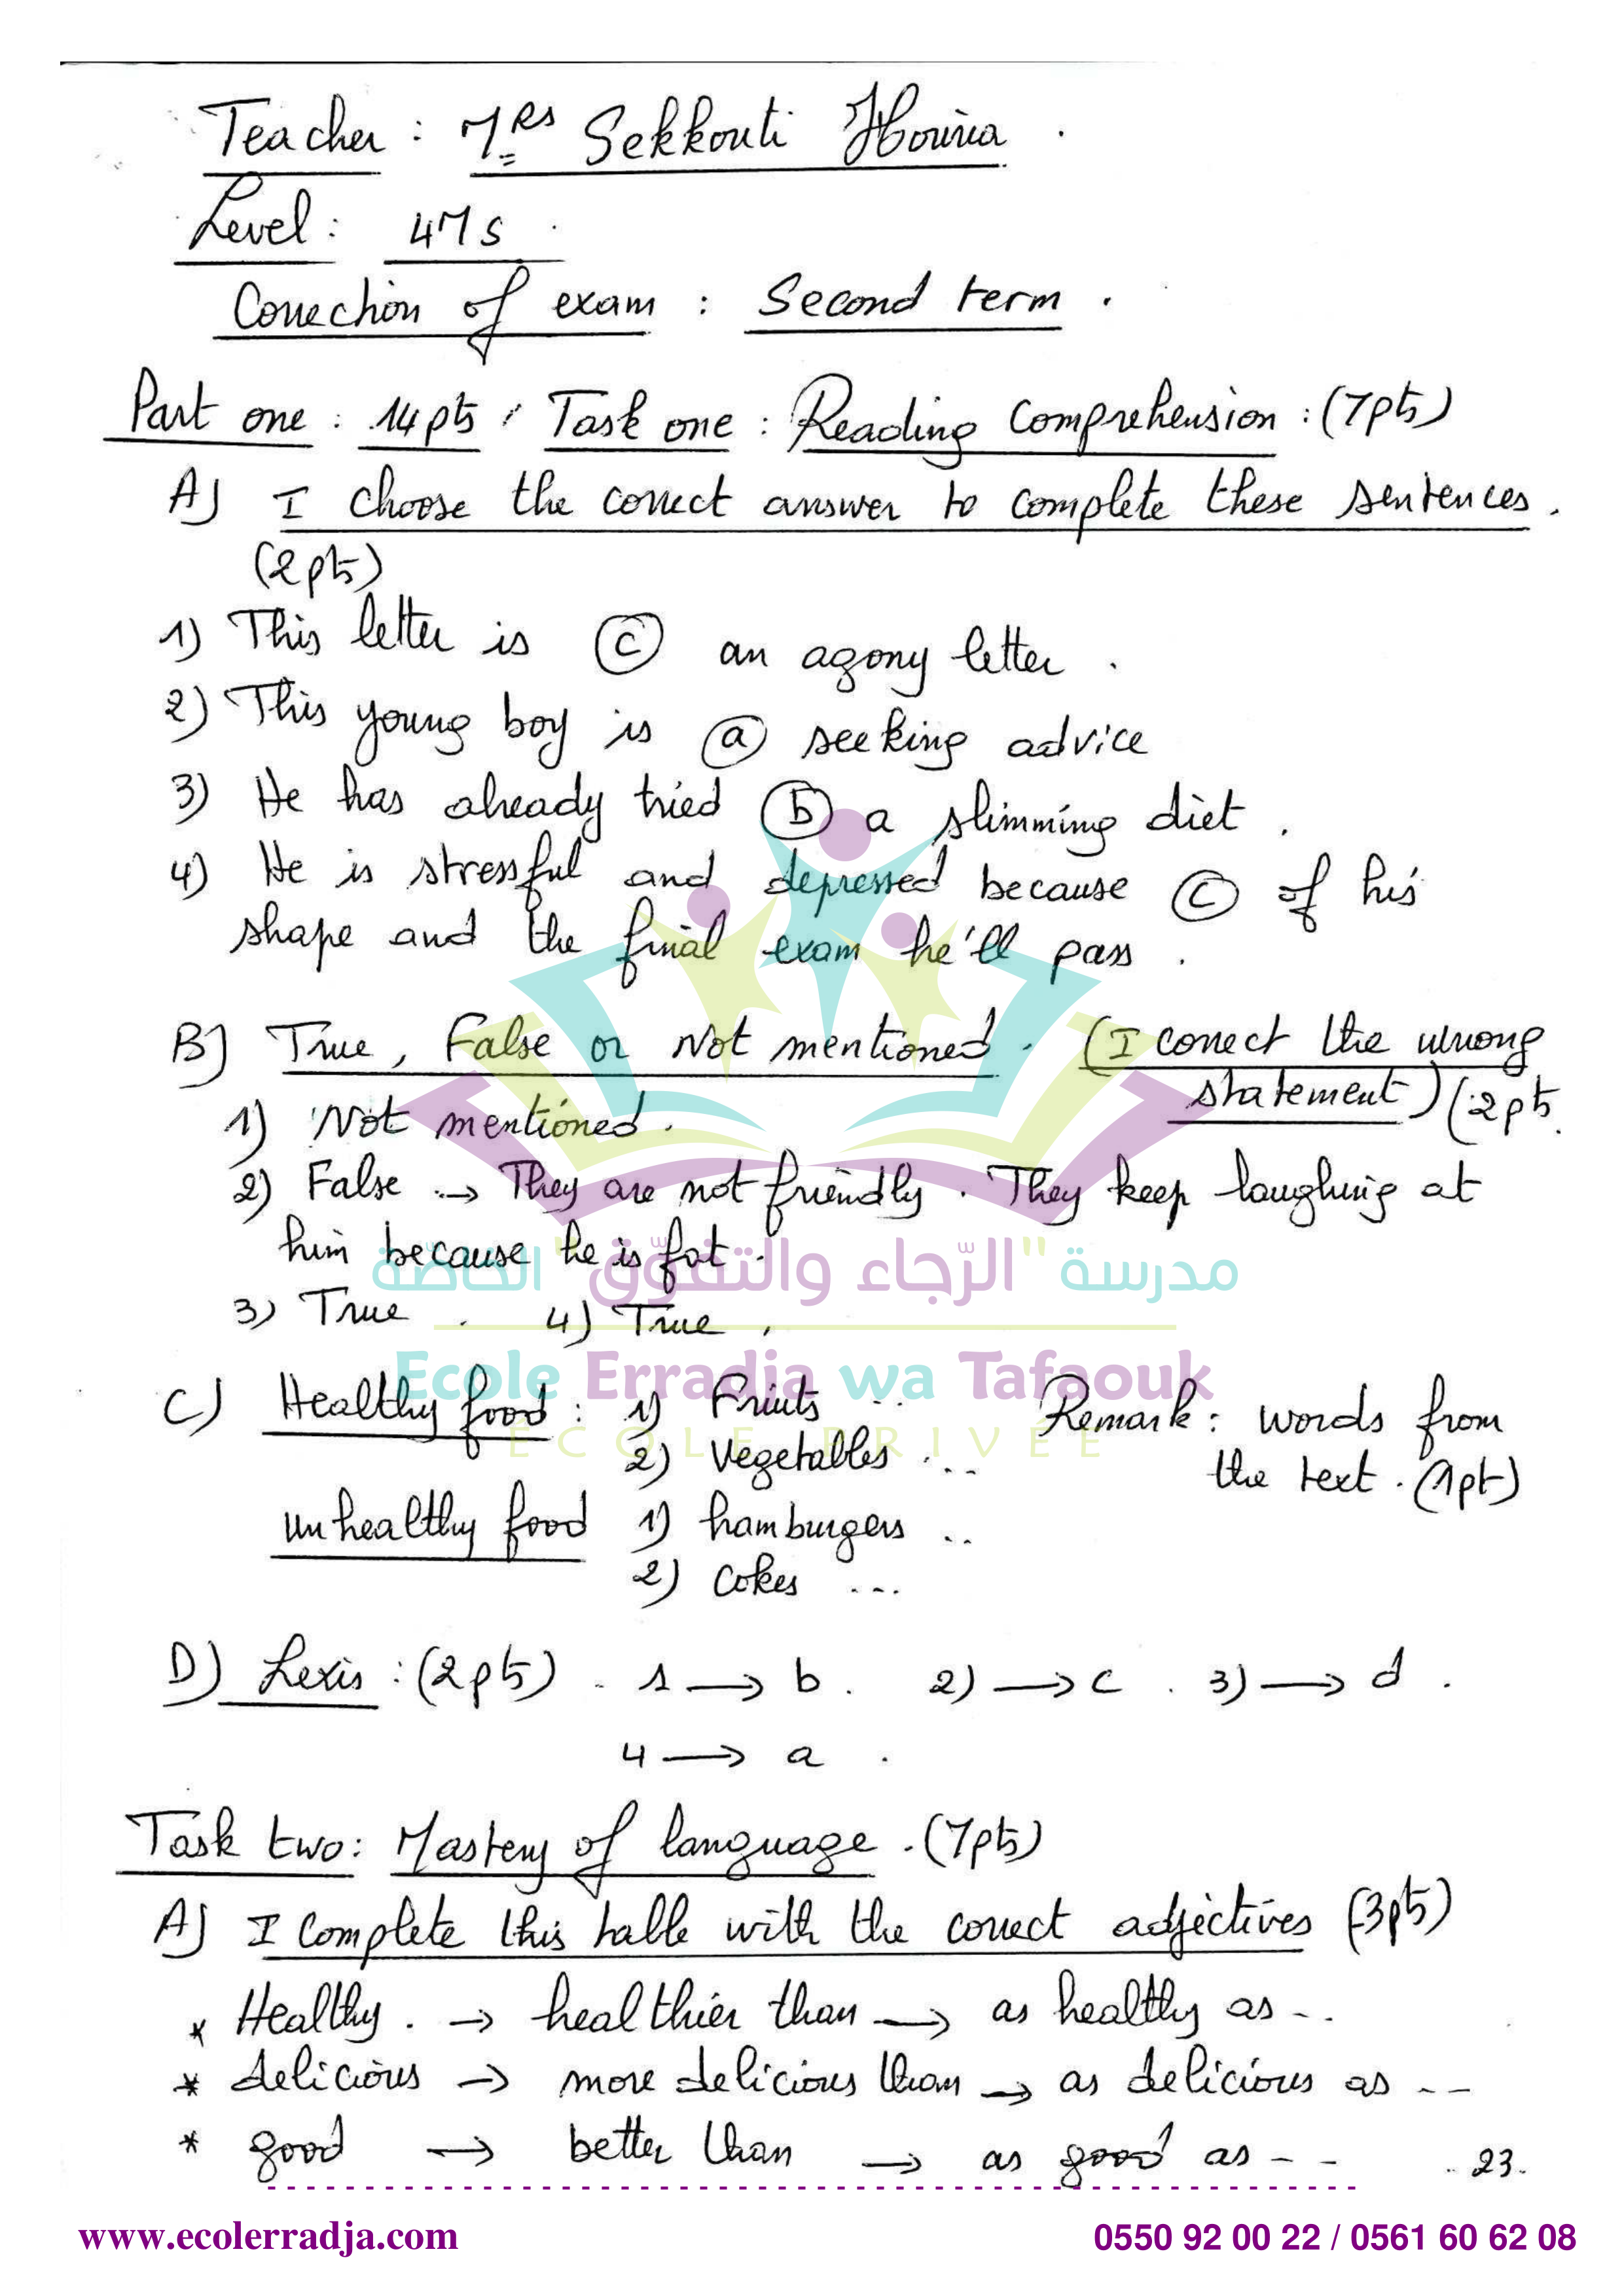 Teacher : Mrs Sekkouti Houria .
Level : 4MS .
Correction of exam : Second term .
Part one : 14pts / Task one : Reading Comprehension : (7pts)
A) I choose the correct answer to complete these sentences .
(2pts)
1) This letter is (c) an agony letter .
2) This young boy is (a) seeking advice
3) He has already tried (b) a slimming diet .
4) He is stressful and depressed because (c) of his
shape and the final exam he'll pass .
B) True , False or Not mentioned . (I correct the wrong
statement) (2pts.
1) Not mentioned .
2) False --> They are not friendly . They keep laughing at
him because he is fat .
مدرسة "الرّجاء والتفوّق" الخاصّة
3) True . 4) True .
Ecole Erradja wa Tafaouk
ÉCOLE PRIVÉE
C) Healthy food : 1) Fruits ... Remark : words from
2) Vegetables ... the text . (1pt)
unhealthy food 1) hamburgers ..
2) Cokes ...
D) Lexis : (2pts) . 1 → b . 2) → c . 3) → d .
4 → a .
Task two : Mastery of language . (7pts)
A) I Complete this table with the correct adjectives (3pts)
* Healthy . → healthier than → as healthy as ...
* delicious → more delicious than → as delicious as --
* good → better than → as good as -- 23.
www.ecolerradja.com 0550 92 00 22 / 0561 60 62 08